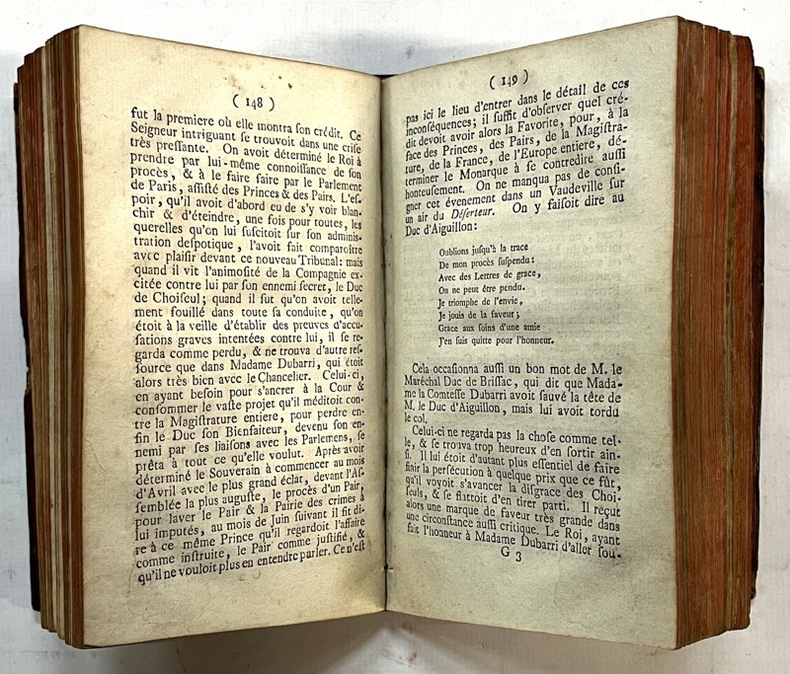 ( 148 )
fut la premiere où elle montra ſon crédit. Ce
Seigneur intriguant ſe trouvoit dans une criſe
très preſſante. On avoit déterminé le Roi à
prendre par lui-même connoiſſance de ſon
procès, & à le faire faire par le Parlement
de Paris, aſſiſté des Princes & des Pairs. L'eſ-
poir, qu'il avoit d'abord eu de s'y voir blan-
chir & d'éteindre, une fois pour toutes, les
querelles qu'on lui ſuſcitoit ſur ſon adminis-
tration deſpotique, l'avoit fait comparoître
avec plaiſir devant ce nouveau Tribunal: mais
quand il vit l'animoſité de la Compagnie ex-
citée contre lui par ſon ennemi ſecret, le Duc
de Choiſeul; quand il ſut qu'on avoit telle-
ment fouillé dans toute ſa conduite, qu'on
étoit à la veille d'établir des preuves d'accu-
ſations graves intentées contre lui, il ſe re-
garda comme perdu, & ne trouva d'autre reſ-
ſource que dans Madame Dubarri, qui étoit
alors très bien avec le Chancelier. Celui-ci,
en ayant beſoin pour s'ancrer à la Cour &
conſommer le vaſte projet qu'il méditoit con-
tre la Magiſtrature entiere, pour perdre en-
fin le Duc ſon Bienfaiteur, devenu ſon en-
nemi par ſes liaiſons avec les Parlemens, ſe
prêta à tout ce qu'elle voulut. Après avoir
déterminé le Souverain à commencer au mois
d'Avril avec le plus grand éclat, devant l'Aſ-
ſemblée la plus auguſte, le procès d'un Pair,
pour laver le Pair & la Pairie des crimes à
lui imputés, au mois de Juin ſuivant il fit di-
re à ce même Prince qu'il regardoit l'affaire
comme inſtruite, le Pair comme juſtifié, &
qu'il ne vouloit plus en entendre parler. Ce n'eſt
( 149 )
pas ici le lieu d'entrer dans le détail de ces
inconſéquences; il ſuffit d'obſerver quel cré-
dit devoit avoir alors la Favorite, pour, à la
face des Princes, des Pairs, de la Magiſtra-
ture, de la France, de l'Europe entiere, dé-
terminer le Monarque à ſe contredire auſſi
honteuſement. On ne manqua pas de conſi-
gner cet évenement dans un Vaudeville ſur
un air du Déſerteur. On y faiſoit dire au
Duc d'Aiguillon:
Oublions juſqu'à la trace
De mon procès ſuſpendu:
Avec des Lettres de grace,
On ne peut être pendu.
Je triomphe de l'envie,
Je jouis de la faveur;
Grace aux ſoins d'une amie
J'en ſuis quitte pour l'honneur.
Cela occaſionna auſſi un bon mot de M. le
Maréchal Duc de Briſſac, qui dit que Mada-
me la Comteſſe Dubarri avoit ſauvé la tête de
M. le Duc d'Aiguillon, mais lui avoit tordu
le col.
Celui-ci ne regarda pas la choſe comme tel-
le, & ſe trouva trop heureux d'en ſortir ain-
ſi. Il lui étoit d'autant plus eſſentiel de faire
finir la perſécution à quelque prix que ce fût,
qu'il voyoit s'avancer la diſgrace des Choi-
ſeuls, & ſe flattoit d'en tirer parti. Il reçut
alors une marque de faveur très grande dans
une circonſtance auſſi critique. Le Roi, ayant
fait l'honneur à Madame Dubarri d'aller ſou-
G 3